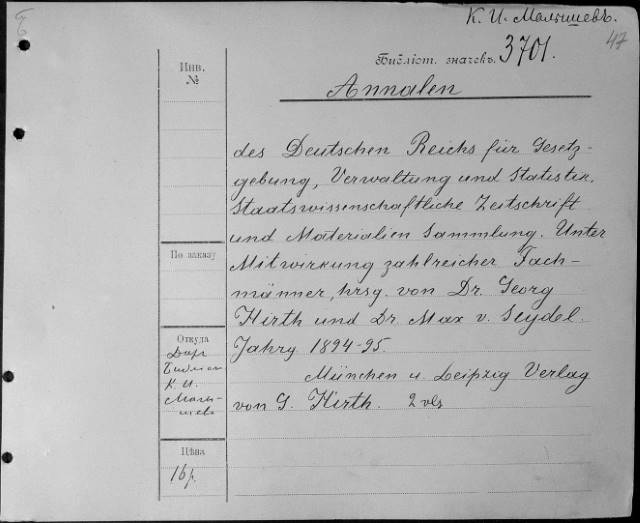 К. И. Малышевъ.
47
Библіот. значекъ. 3701.
Инв.
№
Annalen
des Deutschen Reichs für Gesetz-
gebung, Verwaltung und Statistik.
Staatswissenschaftliche Zeitschrift
und Materialien Sammlung. Unter
Mitwirkung zahlreicher Fach-
männer, hrsg. von Dr. Georg
Hirth und Dr. Max v. Seydel.
Jahrg 1894-95.
München u. Leipzig Verlag
von G. Hirth. 2 vls
По заказу
Откуда
Даръ
К. И.
Малы-
шева
Цѣна
16р.